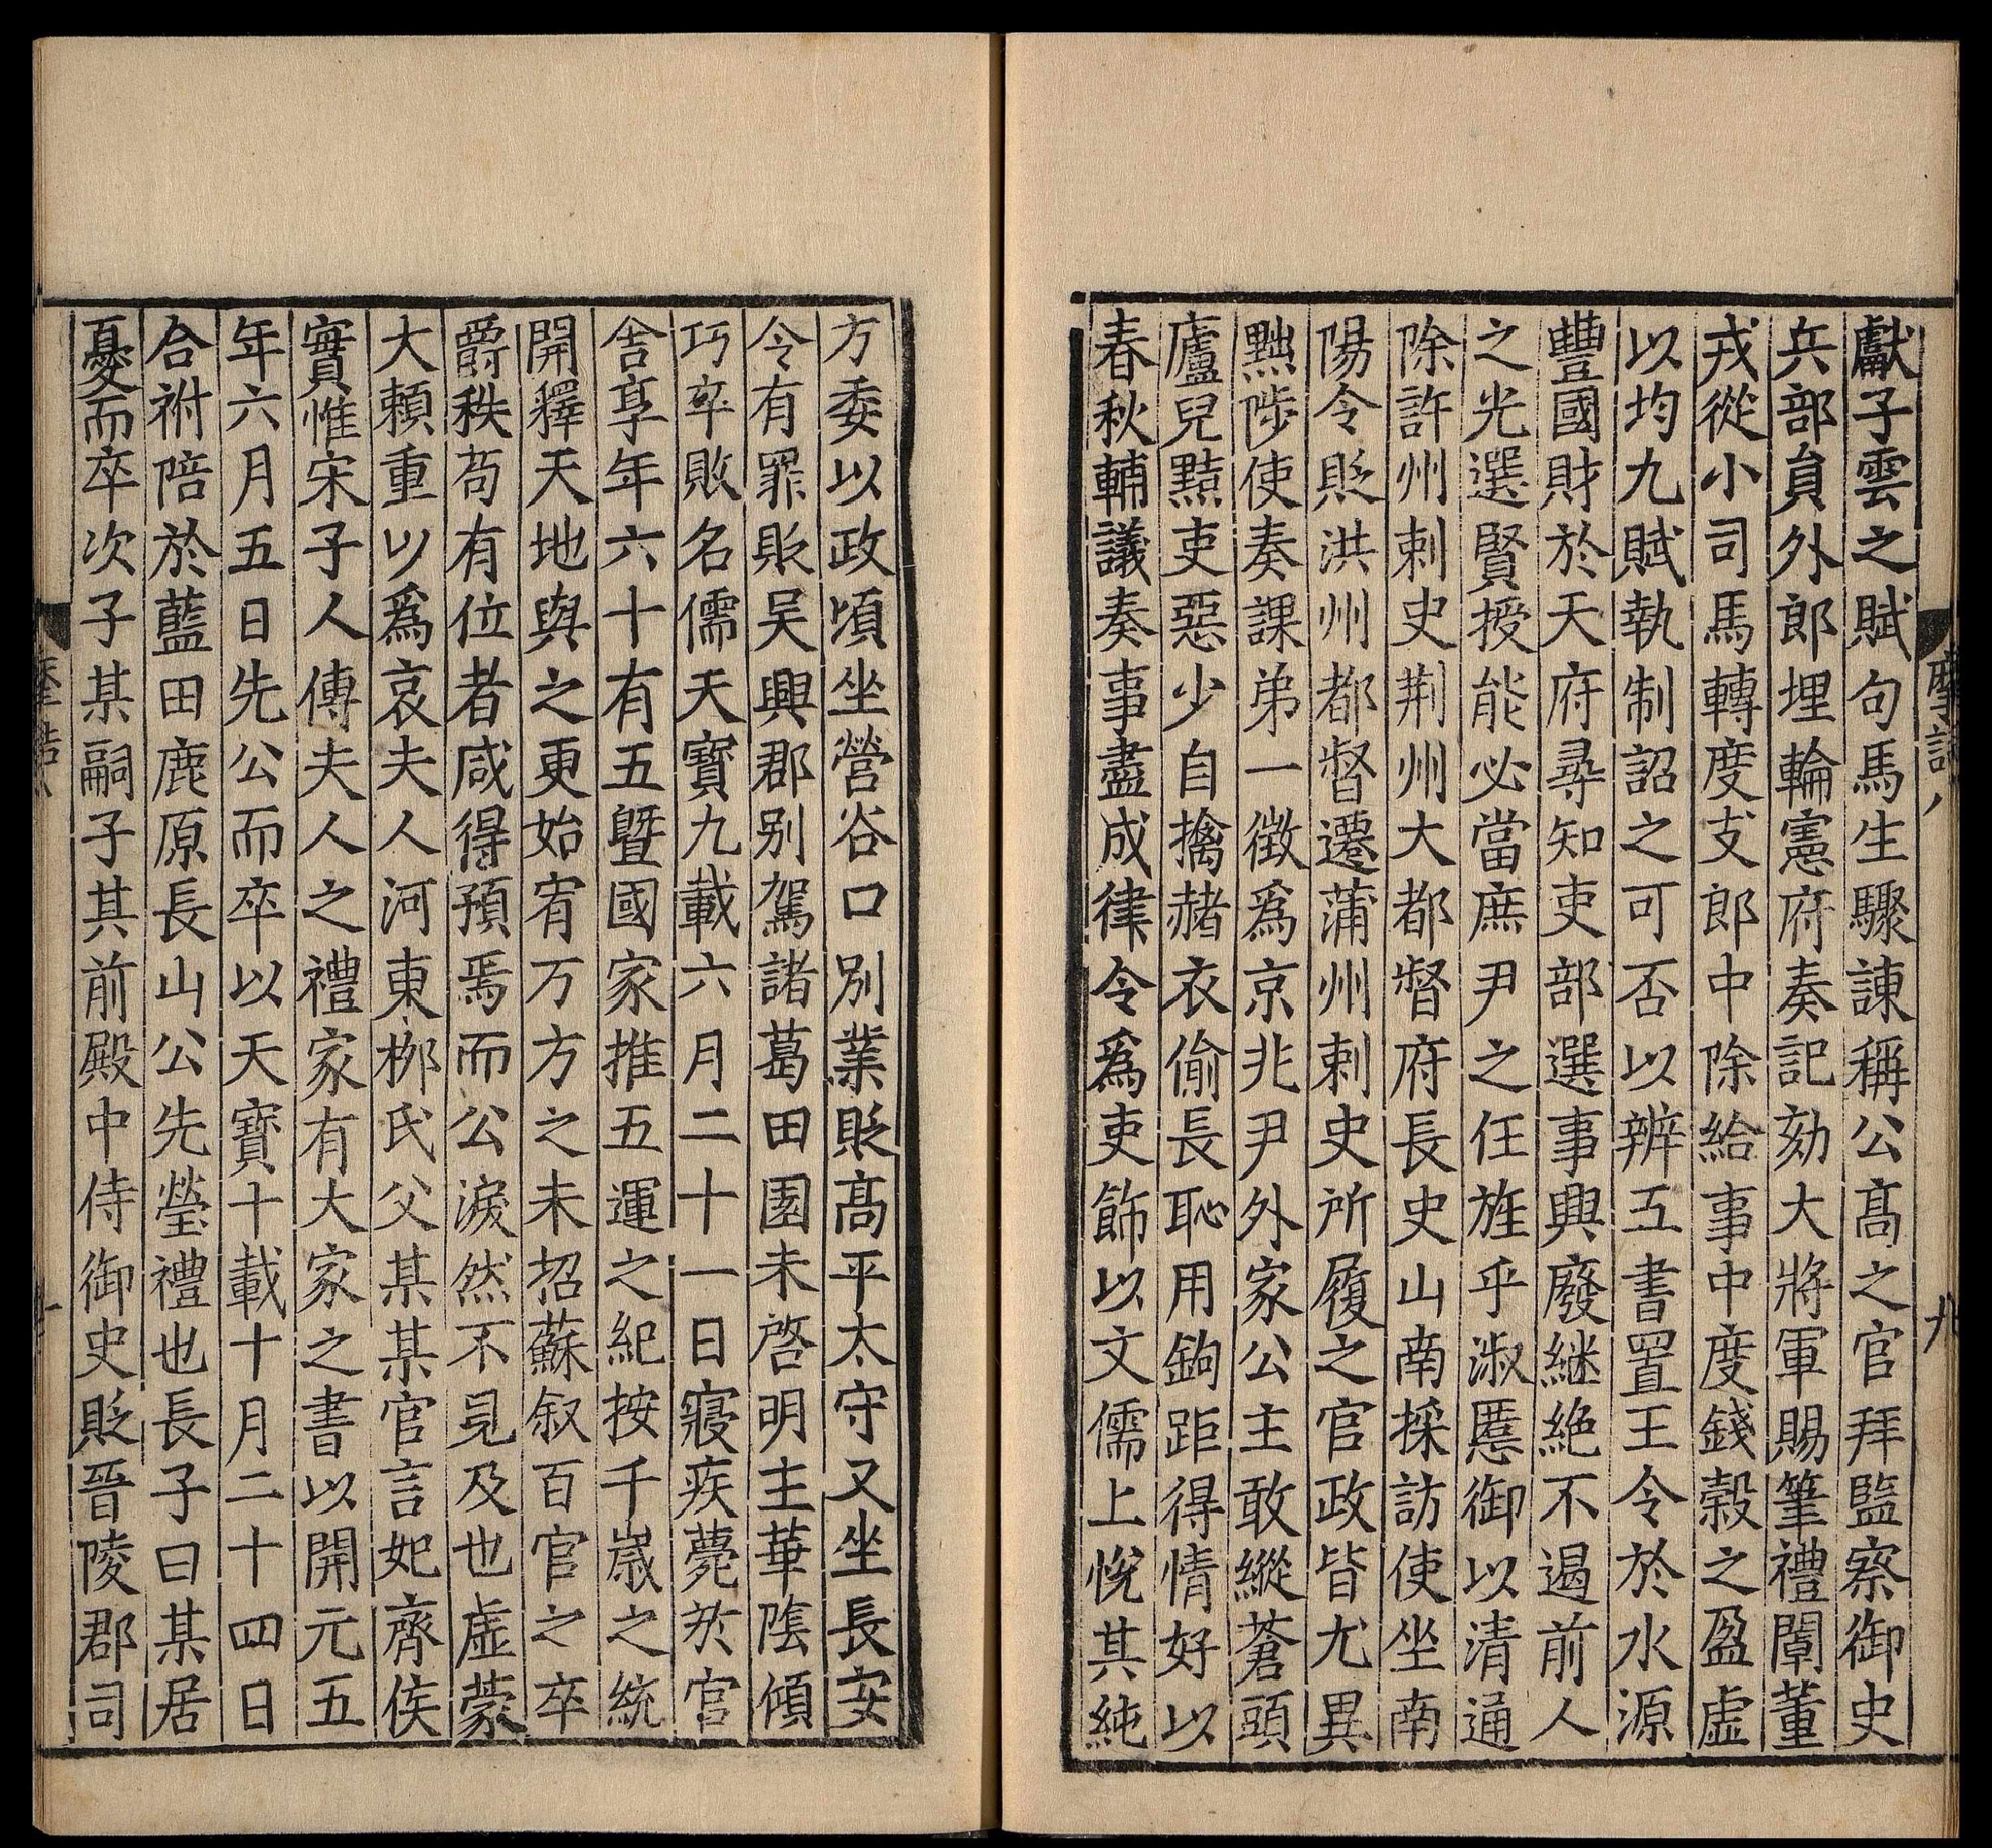 獻子雲之賦句馬生驟諫稱公髙之官拜監察御史
兵部貟外郎埋輪憲府奏記劾大將軍賜筆禮闈董
戎從小司馬轉度支郎中除給事中度錢榖之盈虛
以均九賦執制詔之可否以辨五書置王令於水源
豐國財於天府尋知吏部選事興廢継絶不遏前人
之光選賢授能必當庶尹之任旌乎淑慝御以清通
除許州刺史荆州大都督府長史山南採訪使坐南
陽令貶洪州都督遷蒲州刺史所履之官政皆尤異
黜陟使奏課弟一徵爲京兆尹外家公主敢縱蒼頭
廬兒黠吏惡少自擒赭衣偷長恥用鉤距得情好以
春秋輔議奏事盡成律令爲吏飾以文儒上悅其純
方委以政頃坐營谷口別業貶髙平太守又坐長安
令有罪貶吴興郡別駕諸葛田園未啓明主華陰傾
巧卒敗名儒天寳九載六月二十一日寢疾薨於官
舍享年六十有五曁國家推五運之紀按千嵗之統
開釋天地與之更始宥万方之未招蘇叙百官之卒
爵秩苟有位者咸得預焉而公淚然不見及也虛蒙
大賴重以爲哀夫人河東栁氏父某某官言妃齊侯
實惟宋子人傳夫人之禮家有大家之書以開元五
年六月五日先公而卒以天寶十載十月二十四日
合祔陪於藍田鹿原長山公先塋禮也長子曰某居
憂而卒次子某嗣子其前殿中侍御史貶晉陵郡司